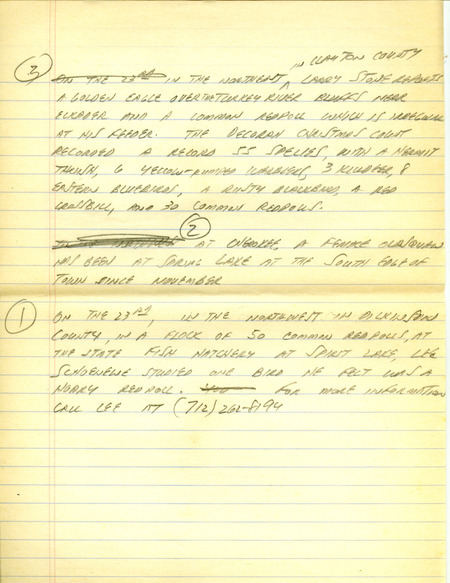 IN CLAYTON COUNTY
③ ON THE 23RD IN THE NORTHEAST, LARRY STONE REPORTS
A GOLDEN EAGLE OVER THE TURKEY RIVER BLUFFS NEAR
ELKADER AND A COMMON REDPOLL WHICH IS IRREGULAR
AT HIS FEEDER. THE DECORAH CHRISTMAS COUNT
RECORDED A RECORD 55 SPECIES, WITH A HERMIT
THRUSH, 6 YELLOW-RUMPED WARBLERS, 3 KILLDEER, 8
EASTERN BLUEBIRDS, A RUSTY BLACKBIRD, A RED
CROSSBILL, AND 30 COMMON REDPOLLS.
② AT CHEROKEE, A FEMALE OLDSQUAW
HAS BEEN AT SPRING LAKE AT THE SOUTH EDGE OF
TOWN SINCE NOVEMBER
① ON THE 23RD, IN THE NORTHWEST IN DICKINSON
COUNTY, IN A FLOCK OF 50 COMMON REDPOLLS, AT
THE STATE FISH HATCHERY AT SPIRIT LAKE, LEE
SCHOENEWE STUDIED ONE BIRD HE FELT WAS A
HOARY REDPOLL. FOR MORE INFORMATION
CALL LEE AT (712) 262-8194